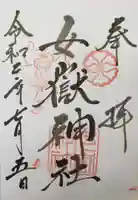 奉拝
女嶽神社
令和六年七月五日